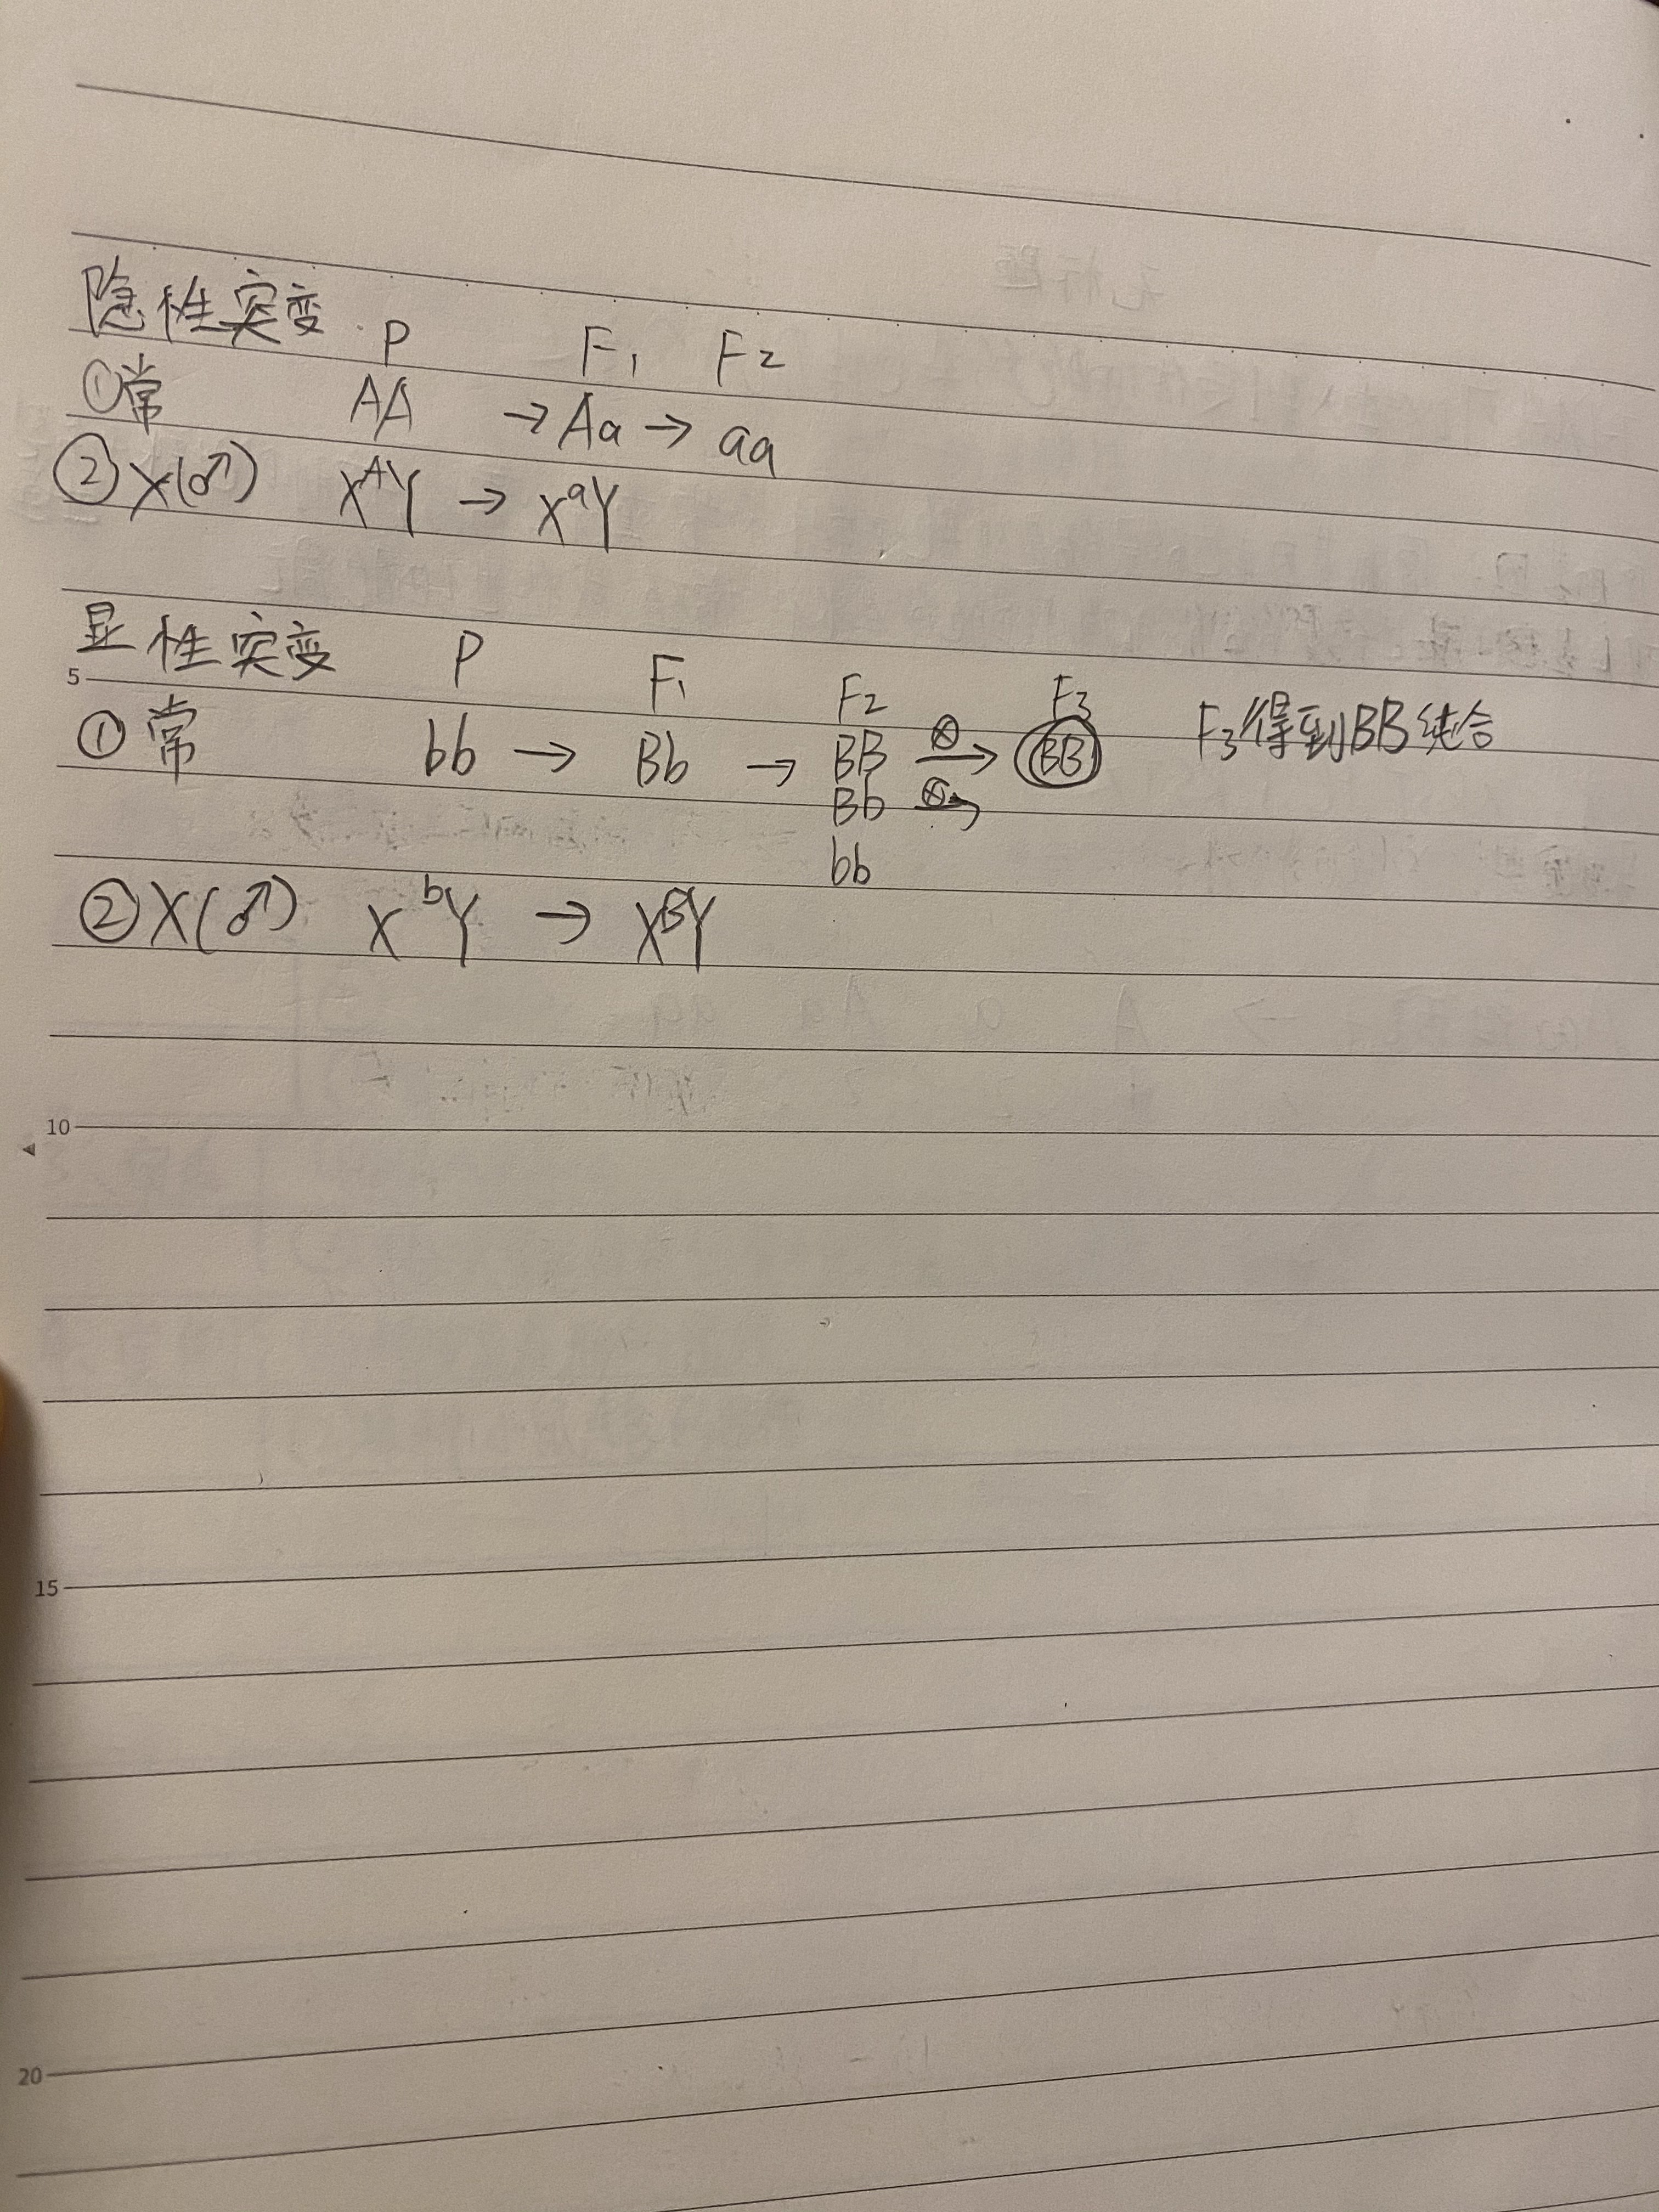 隐性突变 P F₁ F₂
①常 AA → Aa → aa
②X(♂) XᴬY → XᵃY
显性突变 P F₁ F₂ F₃
5
①常 bb → Bb → BB ⊗→ BB F₃得到BB纯合
Bb ⊗→
bb
②X(♂) XᵇY → XᴮY
10
15
20